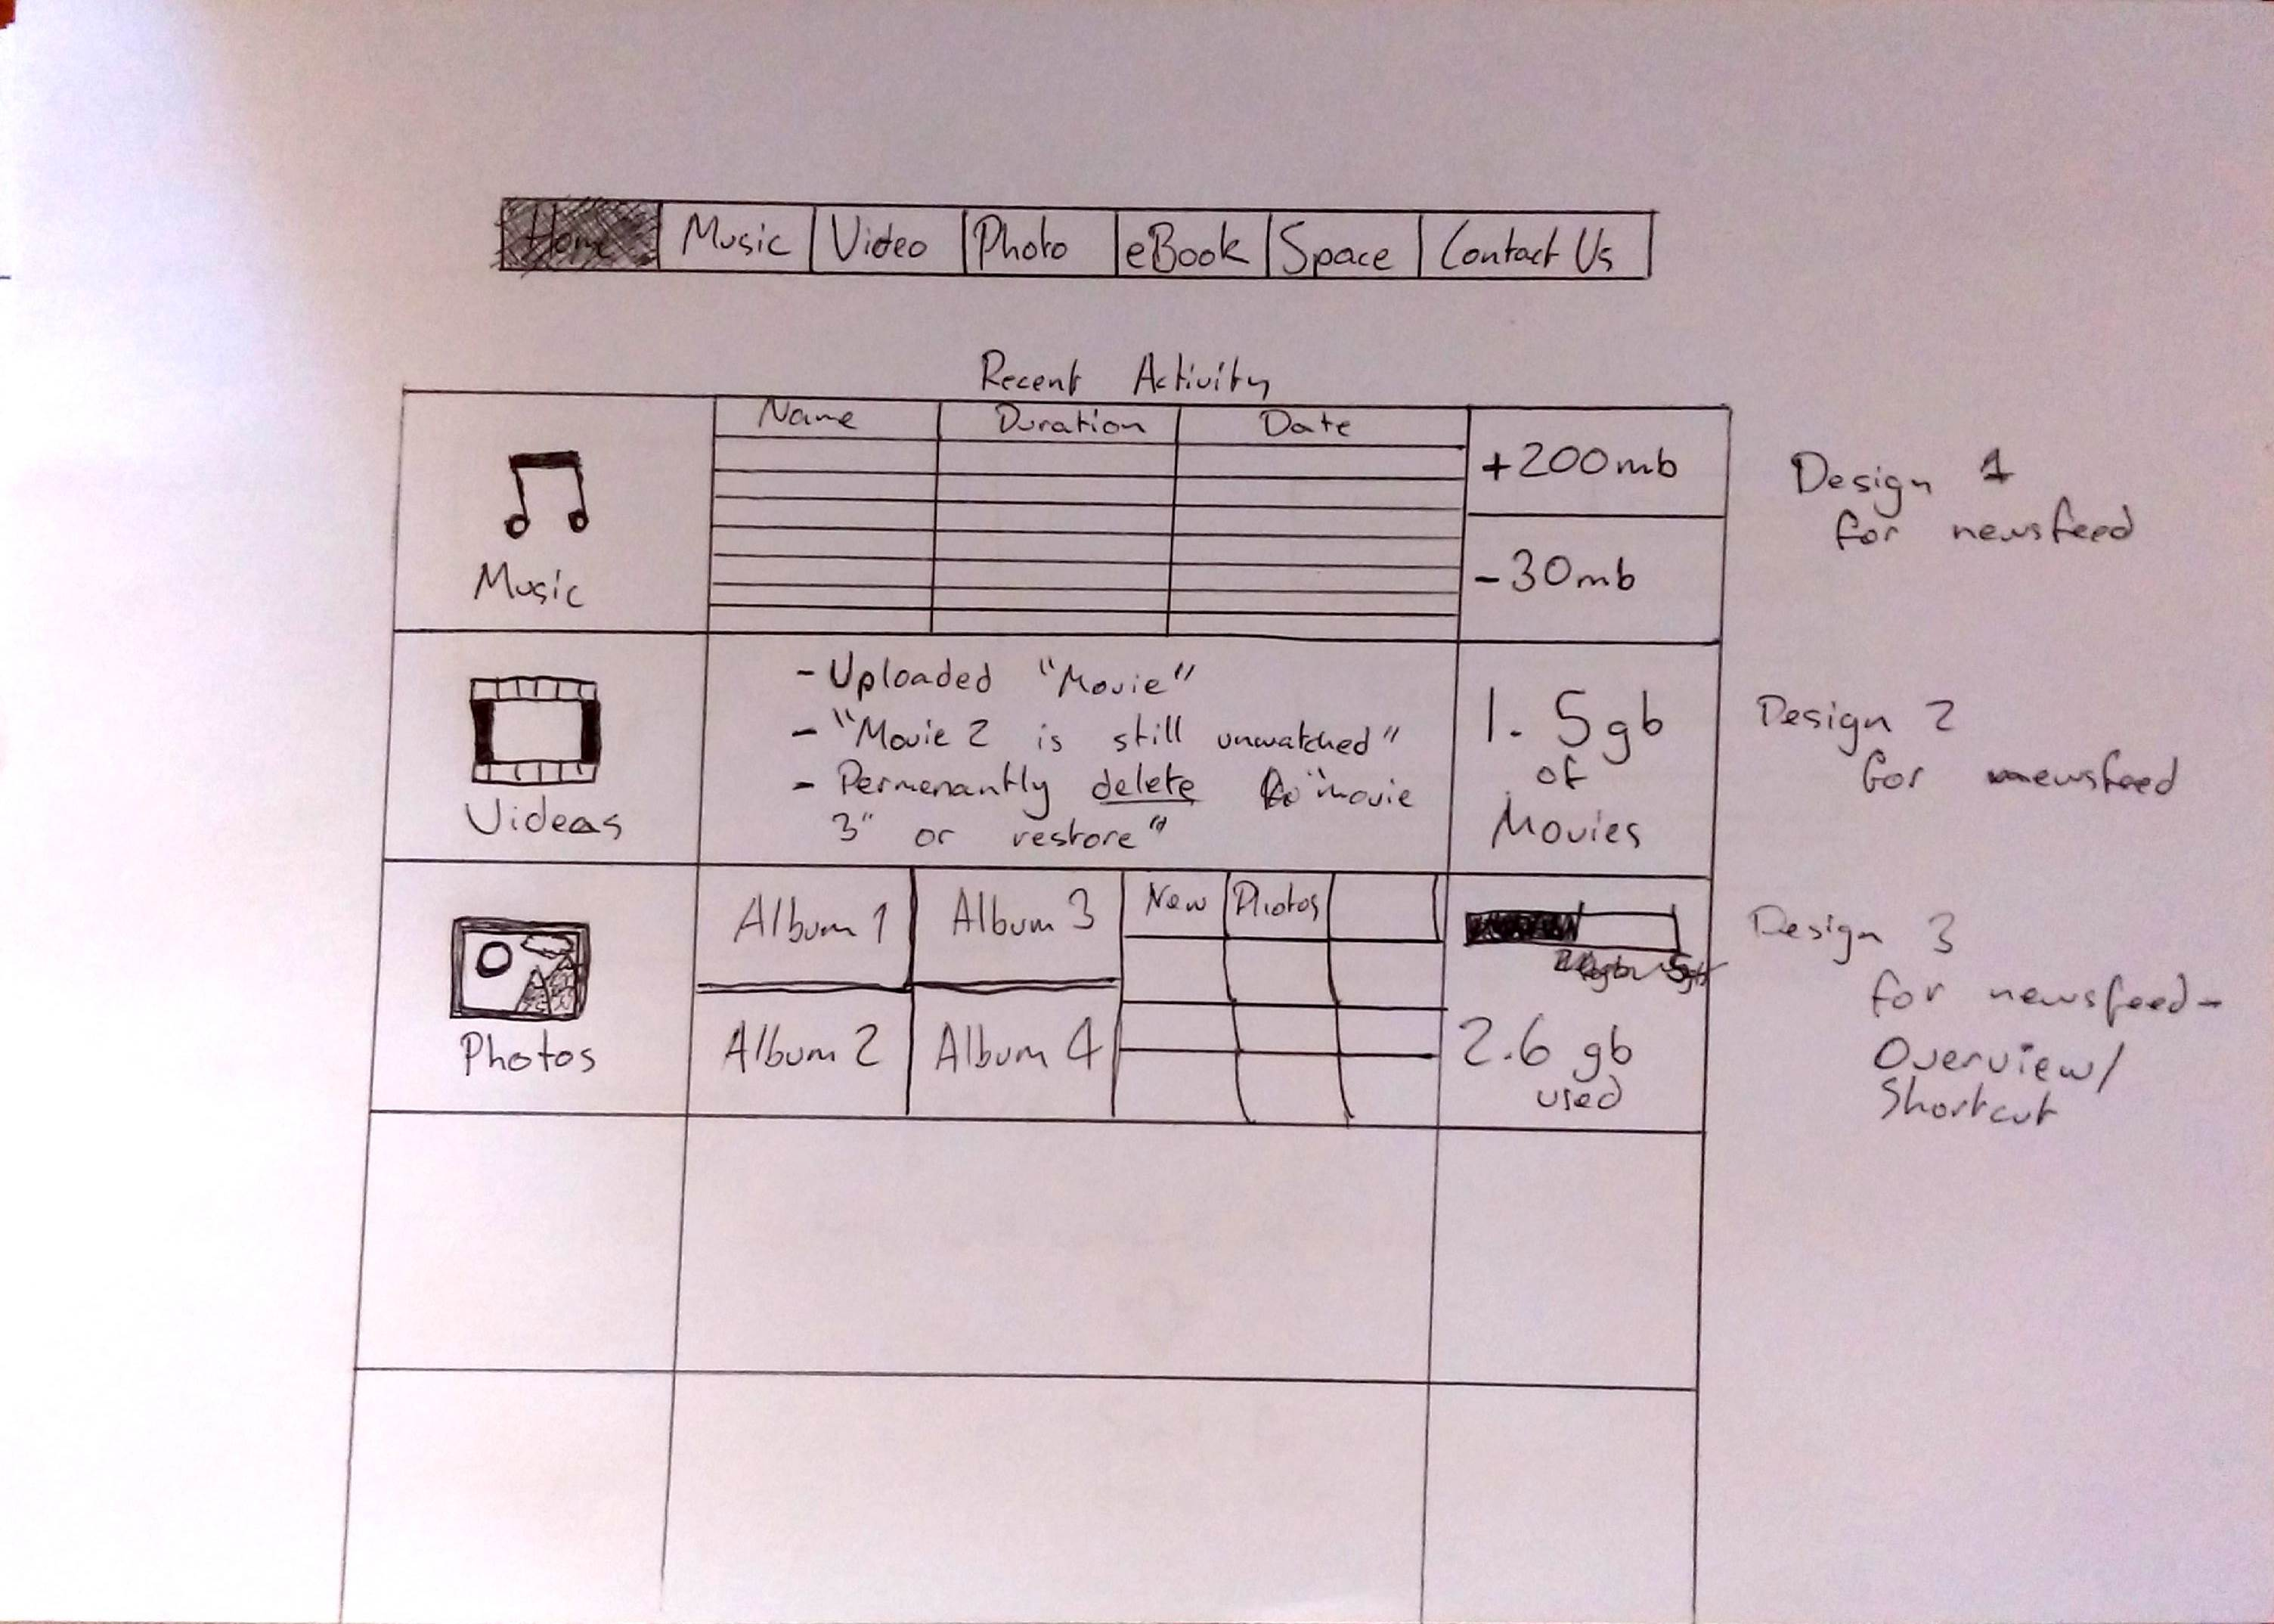 Home Music Video Photo eBook Space Contact Us
Recent Activity
Name Duration Date
+200mb
-30mb
Music
Design 1
for newsfeed
- Uploaded "Movie"
- "Movie 2 is still unwatched"
- Permenantly delete "movie
3" or restore"
Videos
1.5gb
of
Movies
Design 2
for newsfeed
Album 1 Album 3 New Photos
Album 2 Album 4
Photos
2.6 gb
used
Design 3
for newsfeed-
Overview/
Shortcut